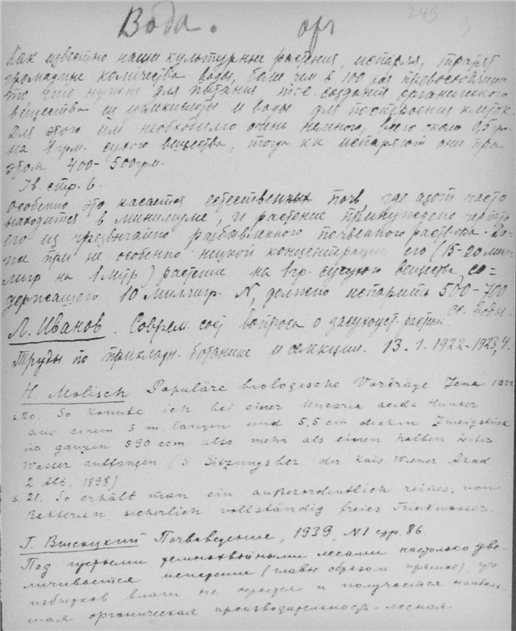 Вода. орг 243
Как известно наши культурные растения, испаряя, тратят
громадные количества воды, более чем в 100 раз превосходящие
то что нужно для питания т.е создания органического
вещества из углекислоты и воды для построения клеток.
Для этого им необходимо очень немного, всего около 0,5 гр.
на 1 грм. сухого вещества, тогда как испаряют они при
этом 400-500 грм.
стр. 6.
Особенно это касается естественных почв, где азот часто
находится в минимуме, и растение принуждено черпать
его из чрезвычайно разбавленного почвенного раствора.
при не особенно низкой концентрации его (15-20 мил-
лигр на 1 литр) растение на 1 гр. сухого вещества со-
держащего 10 миллигр. N должно испарить 500-700
воды.
Л. Иванов. Соврем. сост вопроса о засухоуст. растен.
Труды по прикладн. ботанике и селекции. 13. 1. 1922-1923, 4.
H. Molisch Populäre biologische Vorträge Jena 1922
s. 20. So konnte ich bei einer Uncaria acida Hunter
aus einem 3 m. langen und 5,5 cm dicken Zweigstück
im ganzen 590 ccm also mehr als einen halben Liter
Wasser auffangen (s. Sitzungsber. der Kais Wiener Akad
2 Abt. 1898)
s. 21. So erhält man ein außerordentlich reines, von
Bakterien sicherlich vollständig freies Trinkwasser.
Г. Высоцкий Почвоведение, 1939, N1 стр. 86
Под лесами настолько уве-
личивается испарение (главн образом), что
избытков влаги не и получается наиболь-
шая органическая производительность лесная